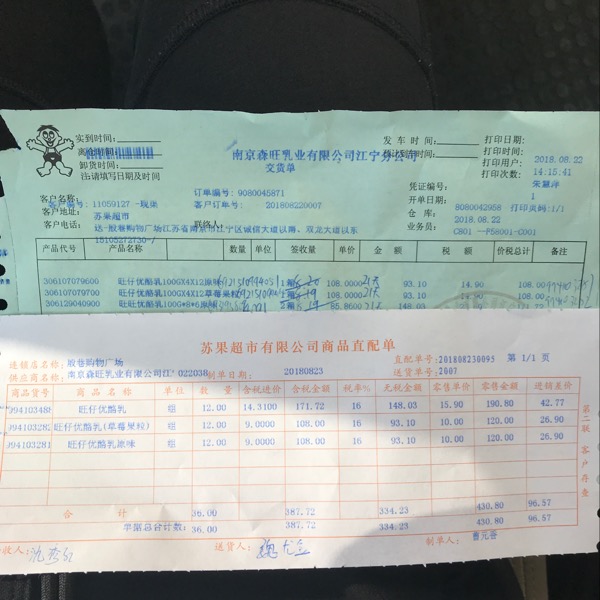 实到时间:
离位时间:
卸货时间
注:请填写日期及时间
南京森旺乳业有限公司江宁分公司
交货单
发 车 时 间:
打印日期: 2018.08.22
打印时间: 14:15:41
打印用户:
打印次数: 1
客户名称:
客户编号: 11059127
订单编号: 9080045871
凭证编号:
客户地址: 苏果超市
客户订单号: 201808220007
开单日期: 2018.08.22
客户电话:
联络人:
仓 库: 8080042956 打印页码:1/1
业务员: C801
15105272730
产品代号 产品名称 数量 单位 签收量 单价 金 额 税 额 价税总计 备注
306107079600 旺仔优酪乳100GX4X12原味 108.0000 93.10 14.90 108.00
306107079700 旺仔优酪乳100GX4X12草莓果粒 108.0000 93.10 14.90 108.00
306129040900 旺仔优酪乳100G*8*6原味 85.8600 148.03
苏果超市有限公司商品直配单
连锁店名称: 殷巷购物广场
直配单号:201808230095 第 1/1 页
供应商名称: 南京森旺乳业有限公司江 022038 制单日期: 20180823 送货单号: 2007
商品货号 商 品 名 称 单位 数 量 含税进价 含税金额 税率% 无税金额 零售单价 零售金额 进销差价
094103488 旺仔优酪乳 组 12.00 14.3100 171.72 16 148.03 15.90 190.80 42.77
094103282 旺仔优酪乳(草莓果粒) 组 12.00 9.0000 108.00 16 93.10 10.00 120.00 26.90
094103281 旺仔优酪乳原味 组 12.00 9.0000 108.00 16 93.10 10.00 120.00 26.90
合 计 36.00 387.72 334.23 430.80 96.57
单据总合计数: 36.00 387.72 334.23 430.80 96.57
收人:
送货人:
制单人:
第二联 客户存查